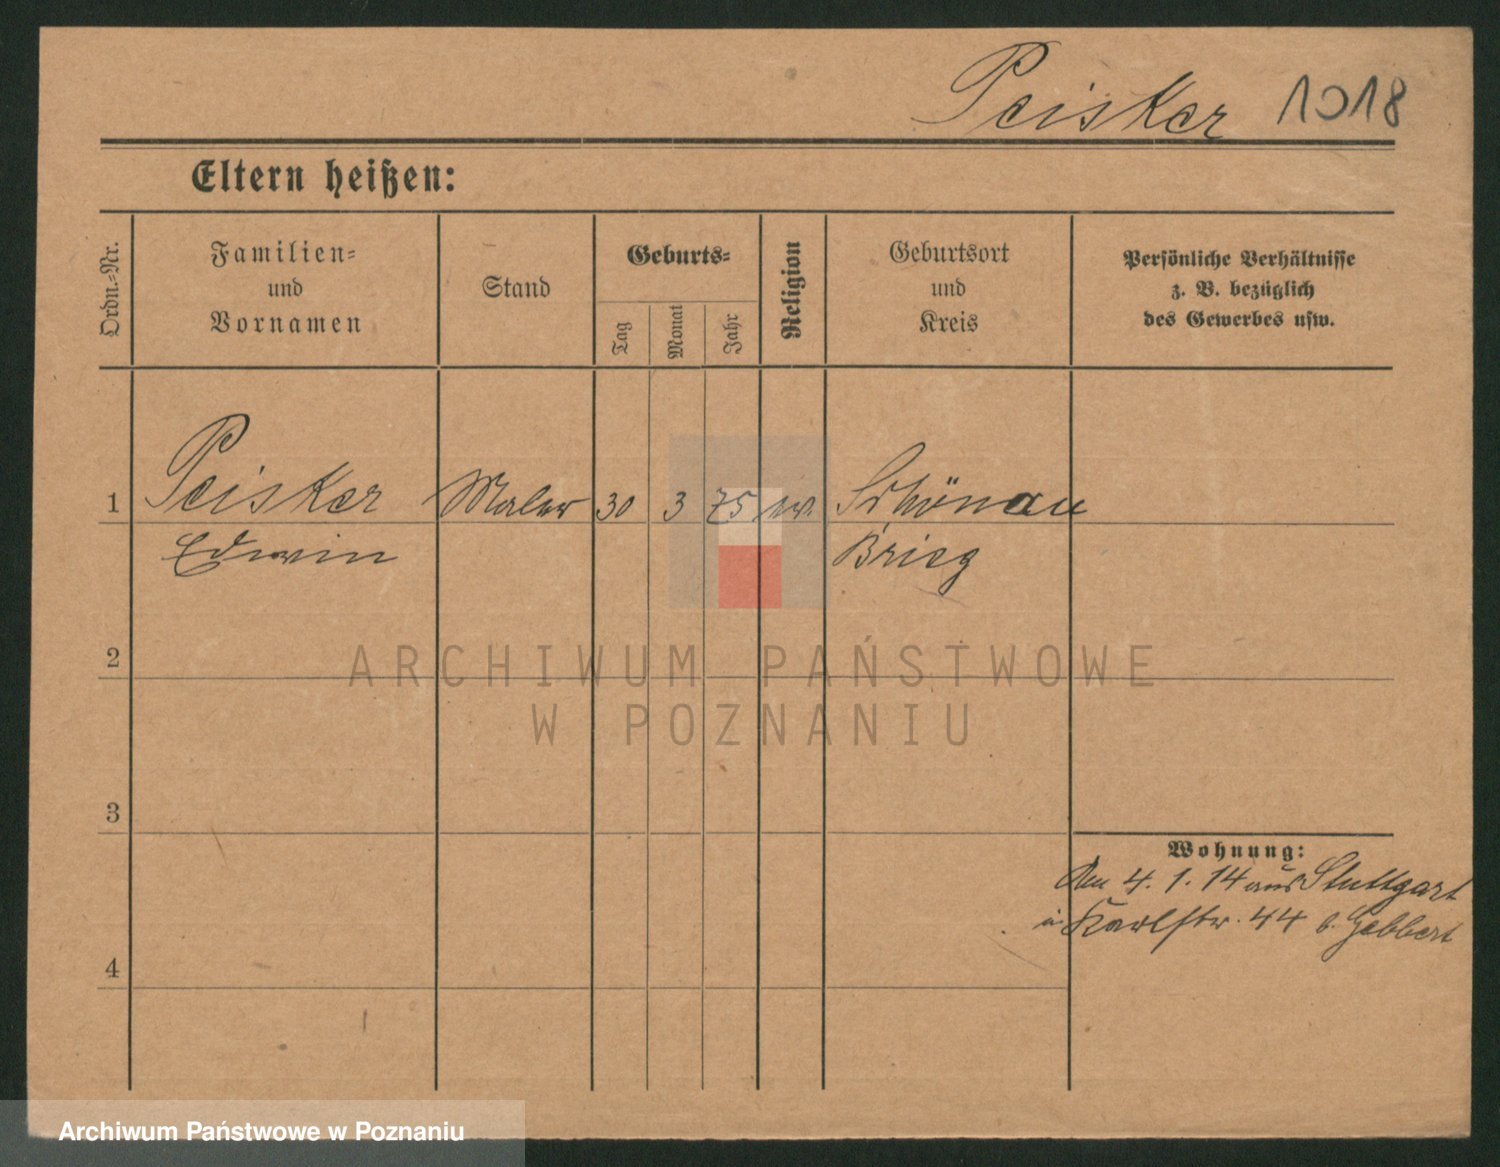 Peisker 1018
Eltern heißen:
Ordn.-Nr.
Familien-
und
Vornamen
Stand
Geburts-
Tag
Monat
Jahr
Religion
Geburtsort
und
Kreis
Persönliche Verhältnisse
z. B. bezüglich
des Gewerbes usw.
1 Peisker Maler 30 3 75 ev. Schönau
Edwin Brieg
2
3
4
Wohnung:
Am 4. 1. 14 aus Stuttgart
in Karlstr. 44 b. Gebbert
ARCHIWUM PAŃSTWOWE
W POZNANIU
Archiwum Państwowe w Poznaniu